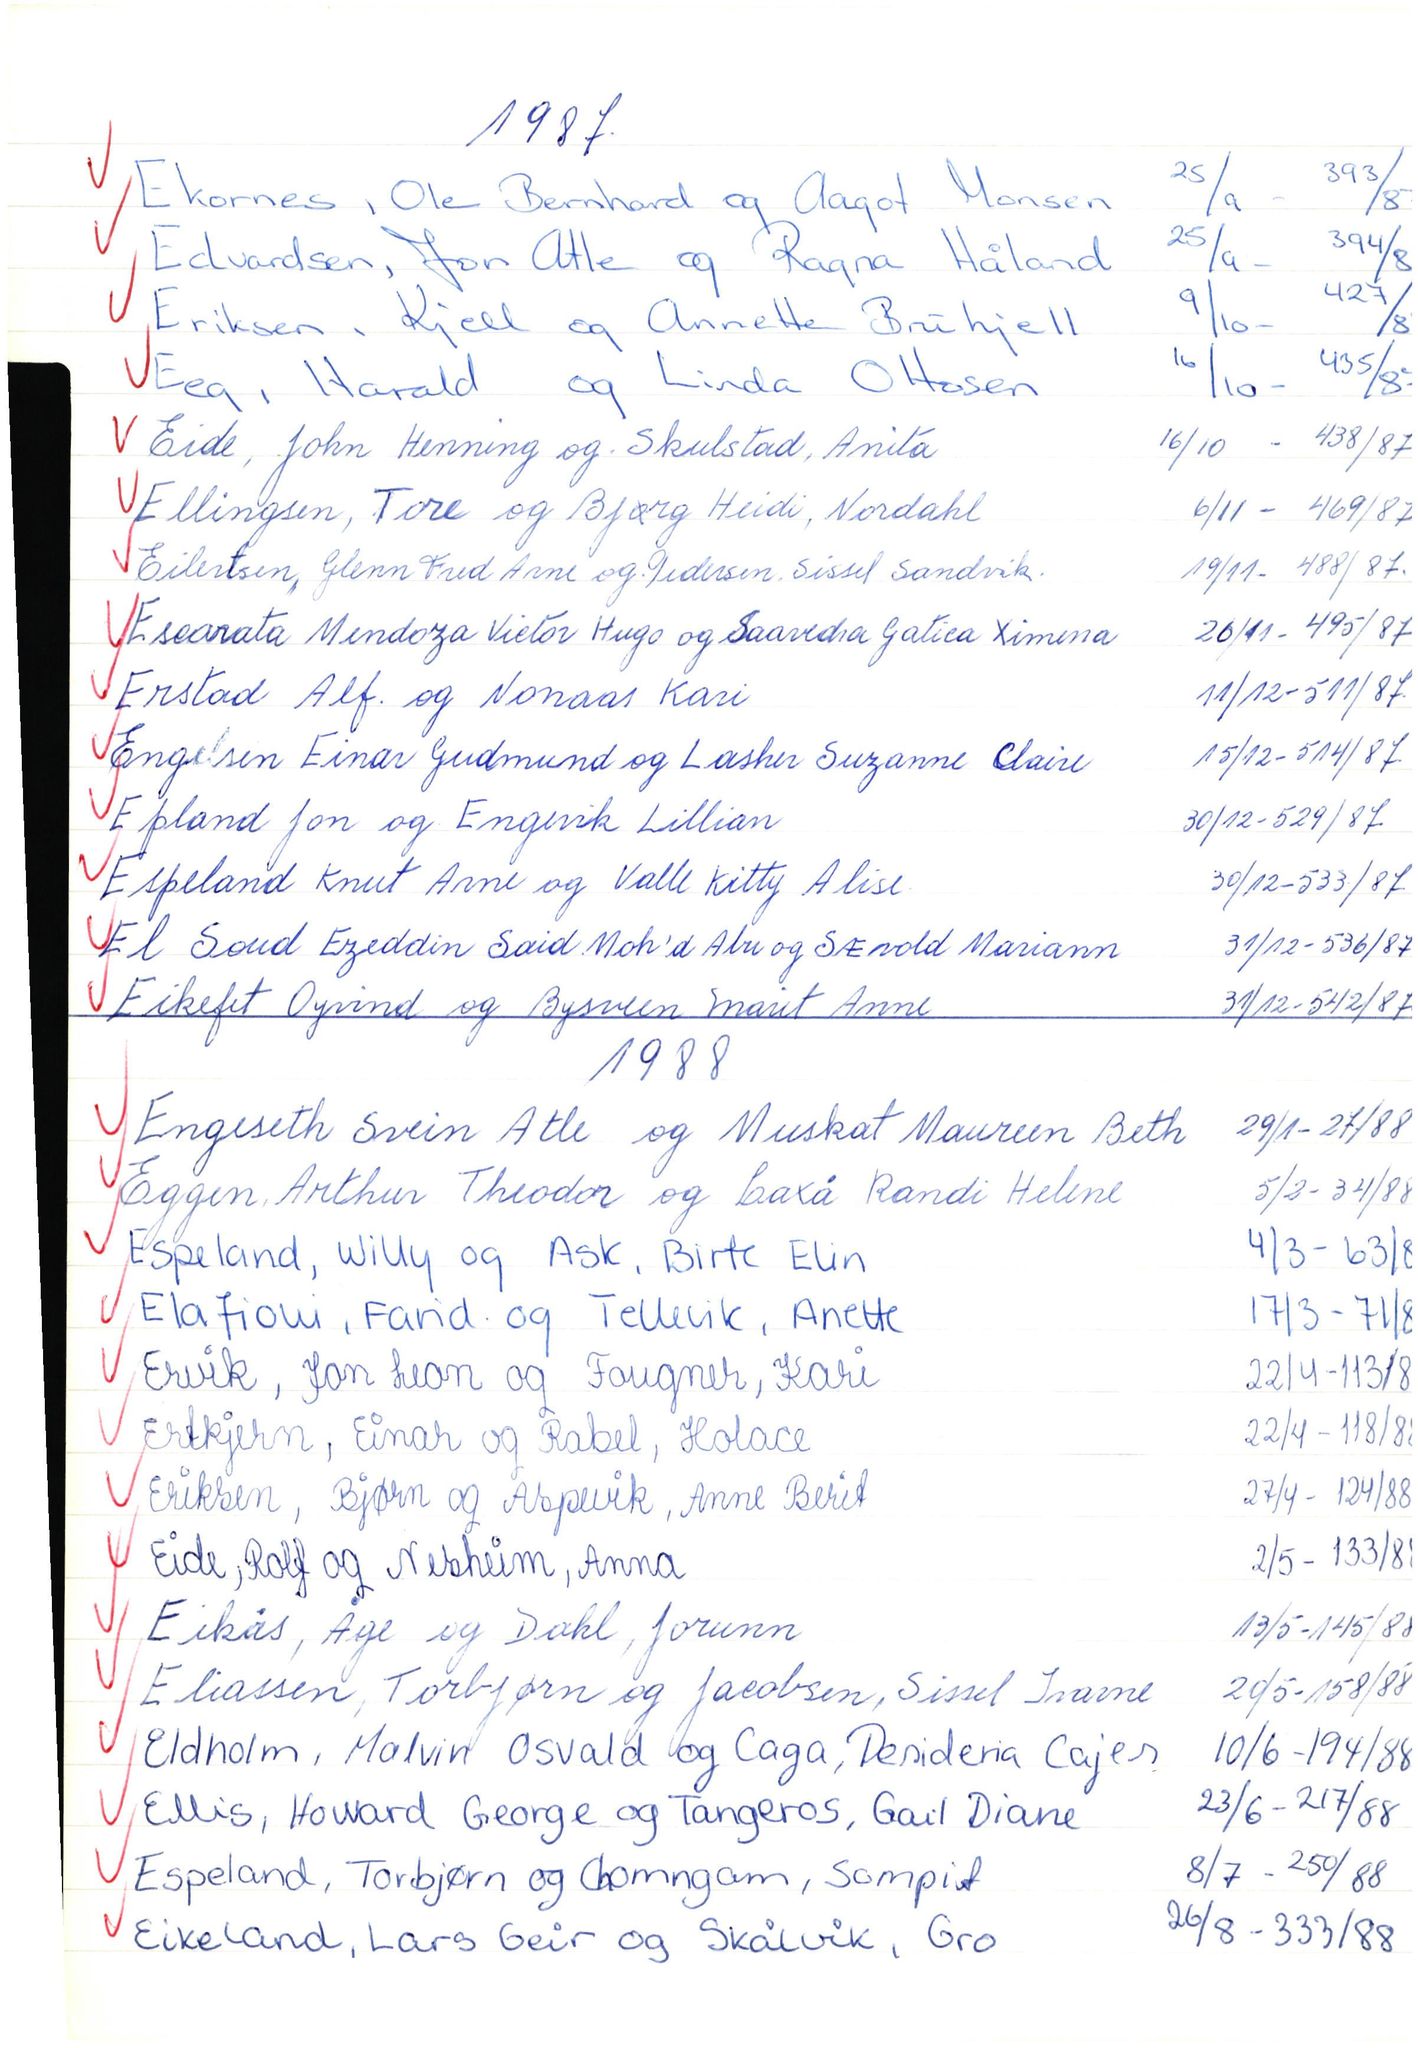 1987.
Ekornes, Ole Bernhard og Aagot Monsen 25/9 - 393/8
Edvardsen, Jon Atle og Ragna Håland 25/9 - 394/8
Eriksen, Kjell og Annette 9/10 - 427/8
Eeg, Harald og Linda Ottosen 16/10 - 435/8
Eide, John Henning og Skulstad, Anita 16/10 - 438/87
Ellingsen, Tore og Bjørg Heidi, Nordahl 6/11 - 469/87
Eilertsen, Glenn Fred Arne og Pedersen. Sissel Sandvik. 19/11 - 488/87.
Escarata Mendoza Victor Hugo og Saavedra Gatica Ximena 26/11 - 495/87
Erstad Alf. og Nonaas Kari 11/12 - 511/87.
Engelsen Einar Gudmund og Lasher Suzanne Claire 15/12 - 514/87
Epland Jon og Engevik Lillian 30/12 - 529/87
Espeland Knut Arne og Valle Kitty Alise 30/12 - 533/87
El Soud Ezeddin Said Moh'd Abu og Sævold Mariann 31/12 - 536/87
Eikefet Oyvind og Bysveen Marit Anne 31/12 - 542/87
1988
Engeseth Svein Atle og Muskat Maureen Beth 29/1 - 27/88
Eggen, Arthur Theodor og Laxå Randi Helene 5/2 - 34/88
Espeland, Willy og Ask, Birte Elin 4/3 - 63/8
Elafioui, Farid og Tellevik, Anette 17/3 - 71/8
Ervik, Jon Leon og Fougner, Kari 22/4 - 113/8
Ertkjern, Einar og Rabel, Holace 22/4 - 118/88
Eriksen, Bjørn og Aspevik, Anne Berit 27/4 - 124/88
Eide, Rolf og Nesheim, Anna 2/5 - 133/88
Eikås, Åge og Dahl, Jorunn 13/5 - 145/88
Eliassen, Torbjørn og Jacobsen, Sissel Irarne 20/5 - 158/88
Eldholm, Malvin Osvald og Caga, Desideria Cajes 10/6 - 194/88
Ellis, Howard George og Tangeros, Gail Diane 23/6 - 217/88
Espeland, Torbjørn og Chomngam, Sompit 8/7 - 250/88
Eikeland, Lars Geir og Skålvik, Gro 26/8 - 333/88